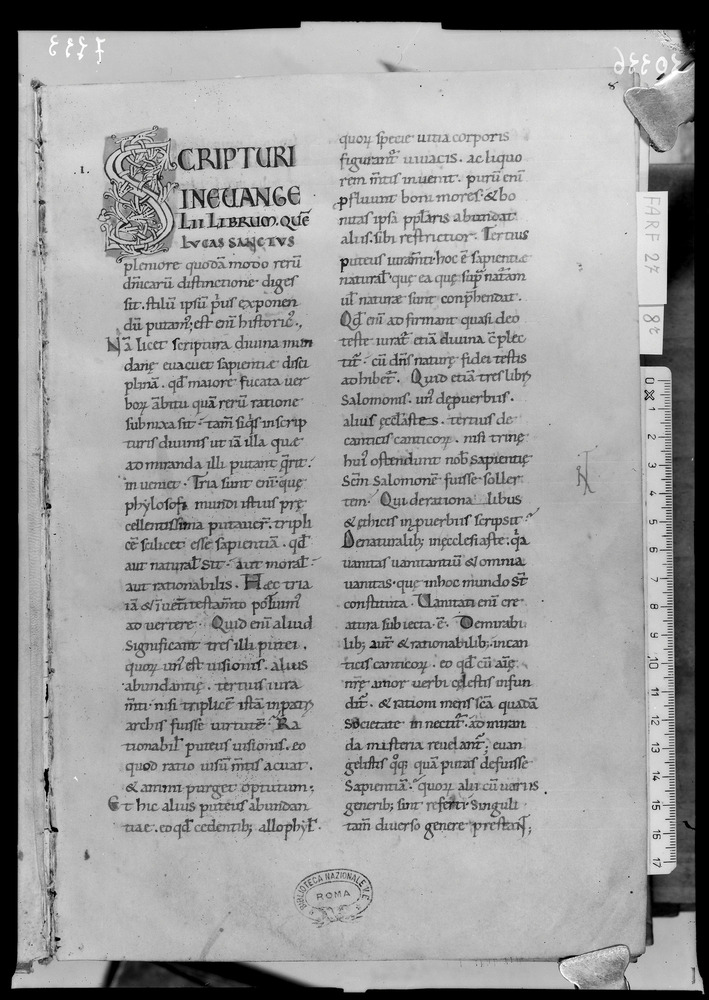 SCRIPTURI
IN EUANGE
LII LIBRUM. QUĒ
LUCAS SANCTUS
pleniore quodā modo rerū
dn̄icarū distinctione diges
sit. stilū ipsū p̄us exponen
dū putam᷒; est enī historic᷒.
Nā licet scriptura diuina mun
danę euacuet sapientię disci
plinā. qđ maiore fucata uer
boꝝ ābitu quā rerū ratione
subnixa sit. tam̄ siq̄s inscrip
turis diuinis ut iā illa que
admiranda illi putant q̄rit.
inueniet. Tria sunt enī. quę
phylosofi mundi istius prę
cellentissima putauer̄. tripli
cē scilicet esse sapientiā. qđ
aut natural̄ sit. aut moral̄.
aut rationabilis. Haec tria
iā & ī ueti testam̄to potuim᷒
aduertere. Quid enī aliud
significant tres illi putei.
quoꝝ un᷒ est uisionis. alius
abundantię. tertius iura
m̄ti. nisi triplicē istā in patꝝ
archis fuisse uirtutē. Ra
tionabil̄ puteus uisionis. eo
quod ratio uisū m̄tis acuat.
& animi purget optutum;
Et hic alius puteus abundan
tiae. eo qđ cedentib; allophyl̄.
quoꝝ specie uitia corporis
figurant᷒ uiuacis. ac liquo
rem m̄tis inuenit. purū enī
ꝓfluunt boni mores. & bo
nitas ipsa pp̄laris abundat
aliis. sibi restrictior. Tertius
puteus iuram̄ti hoc ē sapientia
natural̄ quę ea quę sup̄ natām
ul̄ naturae sunt conp̄hendat.
Qđ enī adfirmant quasi deo
teste iurat᷒ etiā diuina c̄plec
tit᷒. cū dn̄s naturę fidei testis
adhibet᷒. Quid etiā tres libꝝ
Salomonis. un᷒ de ꝓuerbiis.
alius ęcclāstes. tertius de
canticis canticoꝝ. nisi trinę
hui᷒ ostendunt nob̄ sapientię
Sc̄m Salomonē fuisse soller
tem. Qui de rationa libus
& ethicis in ꝓuerbiis scripsit.
De naturalib; in ęcclesiaste. q̄a
uanitas uanitantiū & omnia
uanitas. que in hoc mundo st̄
constituta. Uanitati enī cre
atura subiecta. ē. De mirabi
lib; aut̄ & rationabilib; in can
ticis canticoꝝ. eo qđ cū aīę
nr̄ę amor uerbi cęlestis infun
dit᷒. & rationi mens sc̄ā quadā
societate innectit᷒. admiran
da misteria reuelant᷒; euan
gelistis q̊q̨ quā putas defuisse
sapientiā. quoꝝ alii cū uariis
generib; sint referti singuli
tam̄ diuerso genere prestant;
BIBLIOTECA NAZIONALE V.E.
ROMA
FARF 27
8r
0 1 2 3 4 5 6 7 8 9 10 11 12 13 14 15 16 17